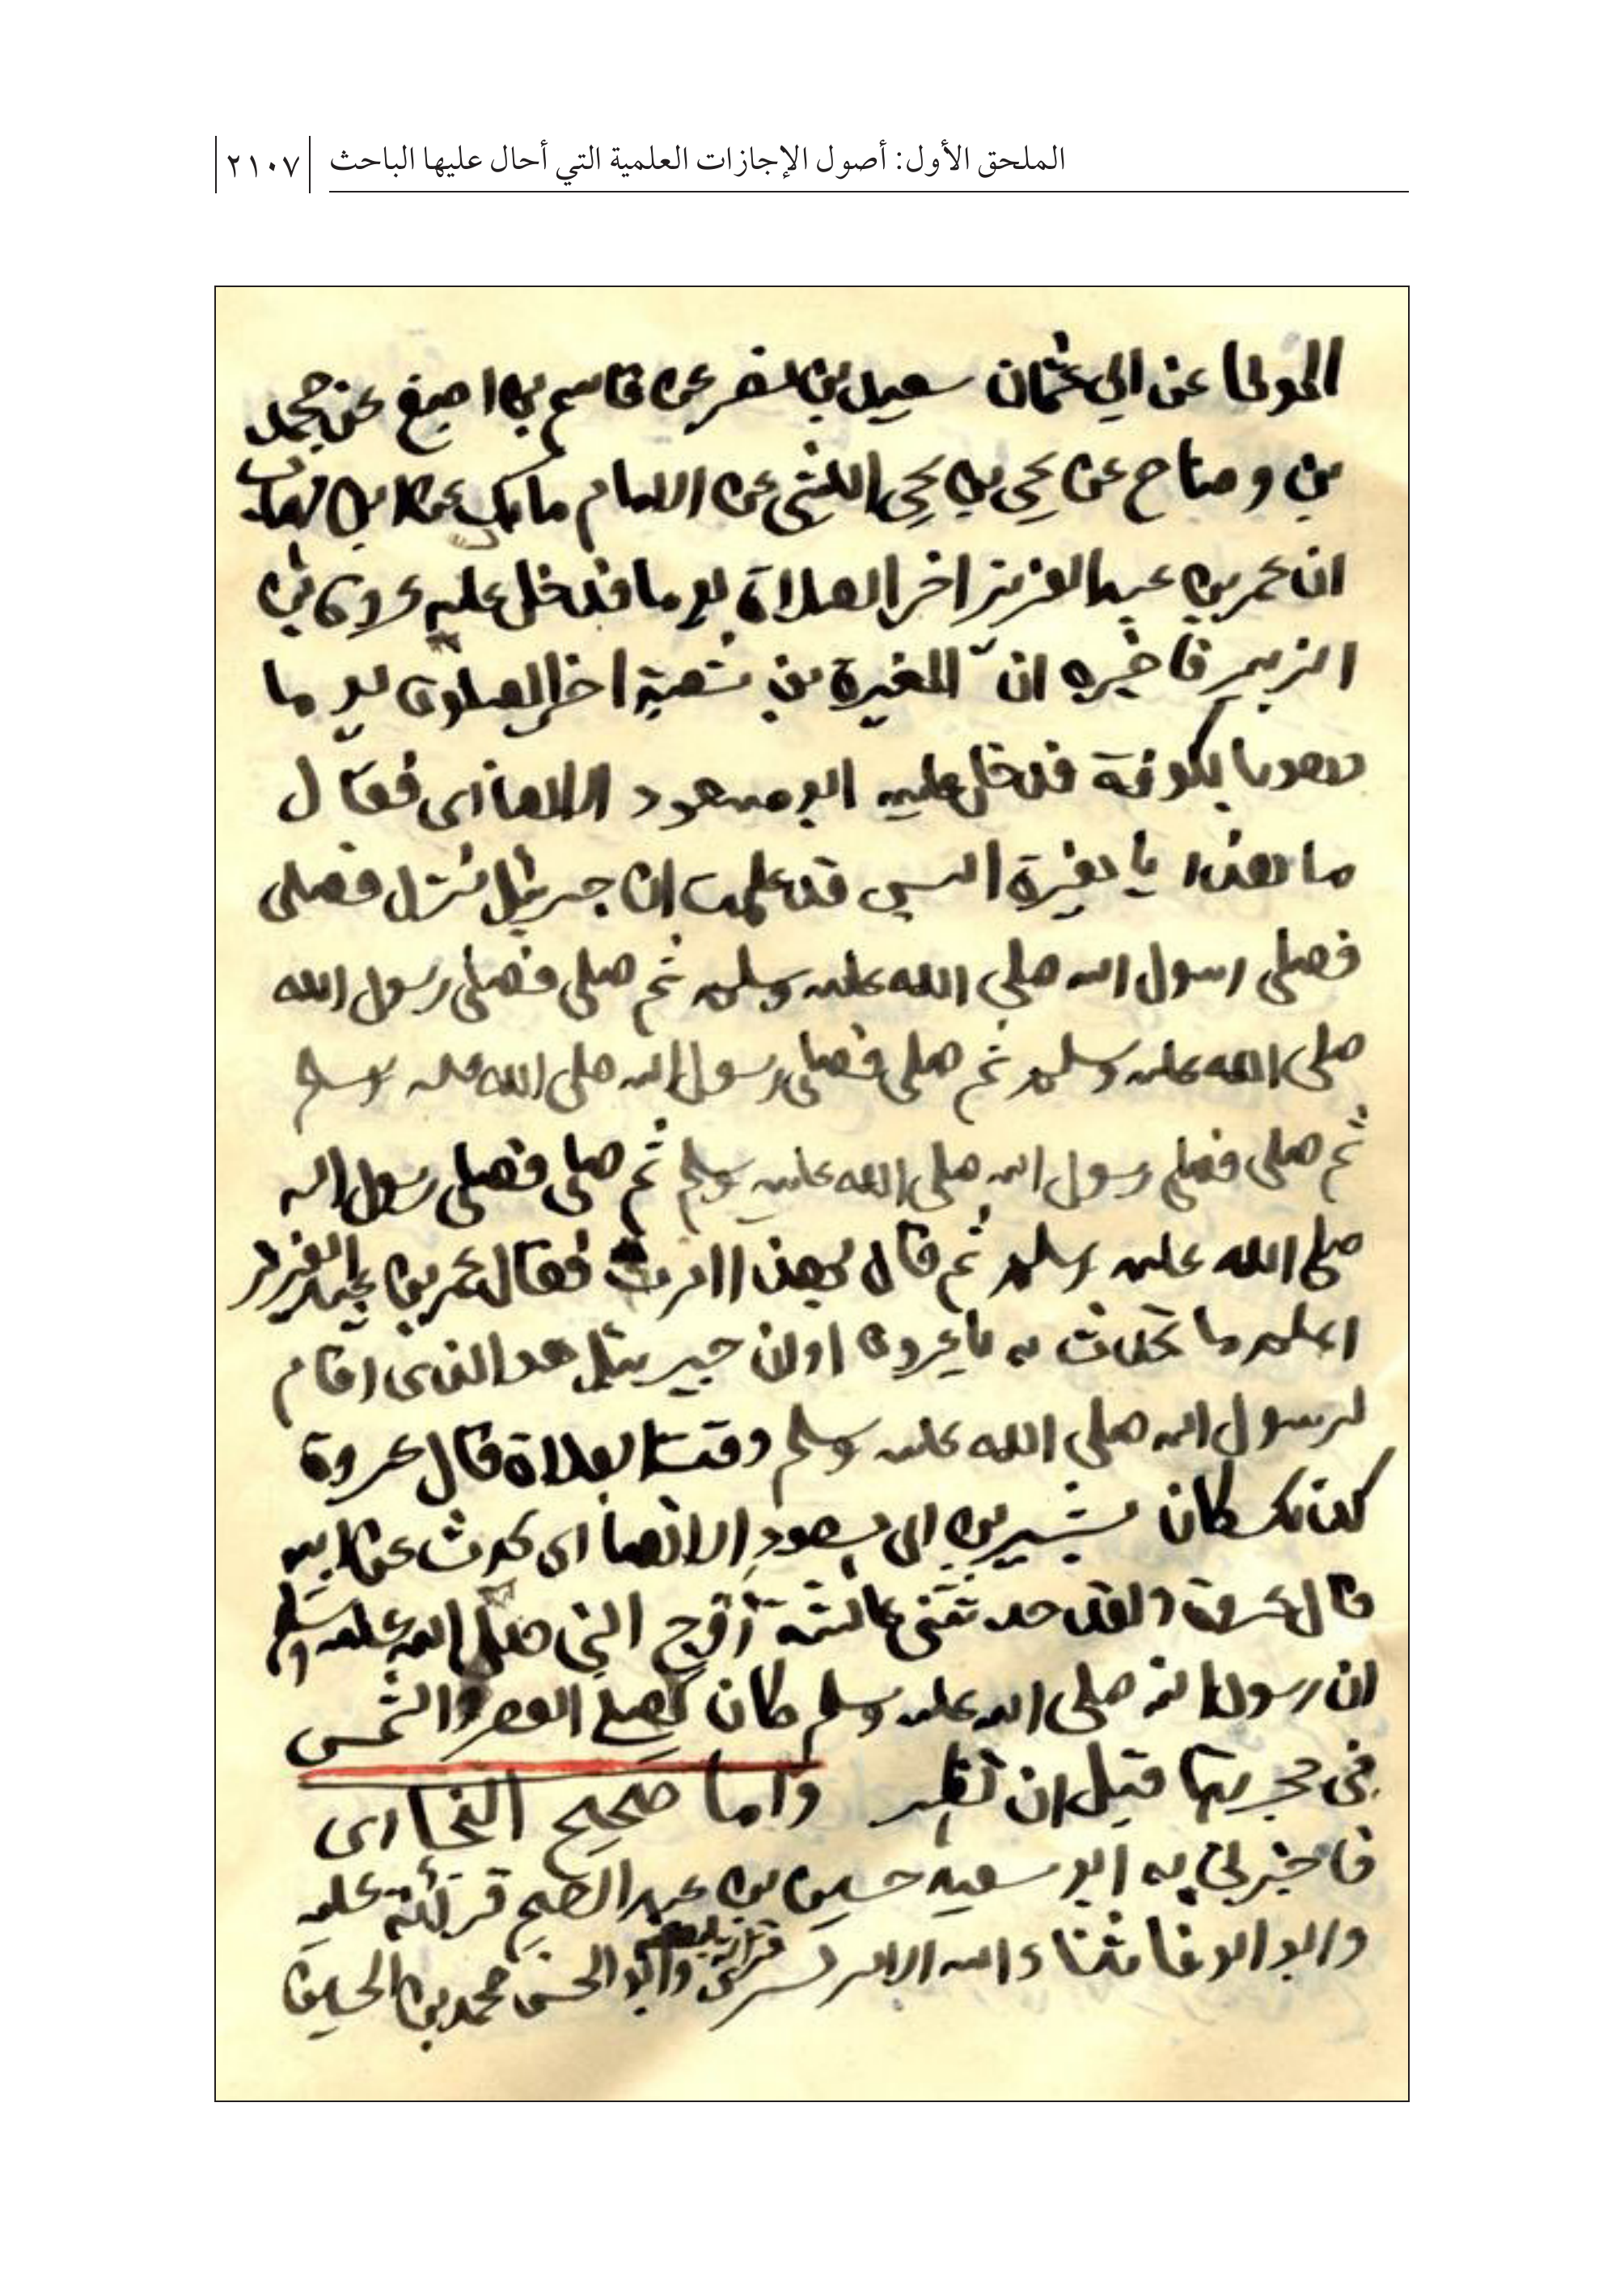 الملحق الأول: أصول الإجازات العلمية التي أحال عليها الباحث ٢١٠٧
الموطا عن ابي عثمان سعيد بن نصر عن قاسم بن اصبغ عن محمد
بن وضاح عن يحي بن يحي الليثي عن الامام مالك عن ابن شهاب
ان عمر بن عبد العزيز اخر الصلاة يوما فدخل عليه عروة بن
الزبير فاخبره ان المغيرة بن شعبة اخر الصلوة يوما
وهو بالكوفة فدخل عليه ابو مسعود الانصاري فقال
ما هذا يا مغيرة اليس قد علمت ان جبرئيل نزل فصلى
فصلى رسول الله صلى الله عليه وسلم ثم صلى فصلى رسول الله
صلى الله عليه وسلم ثم صلى فصلى رسول الله صلى الله عليه وسلم
ثم صلى فصلى رسول الله صلى الله عليه وسلم ثم صلى فصلى رسول الله
صلى الله عليه وسلم ثم قال بهذا امرت فقال عمر بن عبد العزيز
اعلم ما تحدث به يا عروة اوان جبرئيل هو الذي اقام
لرسول الله صلى الله عليه وسلم وقت الصلاة قال عروة
كذلك كان بشير بن ابي مسعود الانصاري يحدث عن ابيه
قال عروة ولقد حدثتني عائشة زوج النبي صلى الله عليه وسلم
ان رسول الله صلى الله عليه وسلم كان يصلي العصر والشمس
في حجرتها قبل ان تظهر واما صحيح البخاري
فاخبرني به ابو سعيد حسين بن عبد الرحيم قرائة عليه
وابو الوفا ثناء الله الامرتسري وابو الحسن محمد بن الحسين